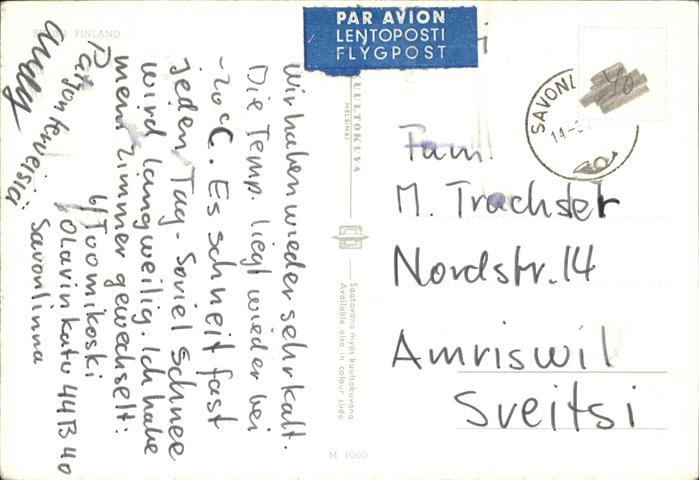 SUOMI FINLAND
PAR AVION
LENTOPOSTI
FLYGPOST
Wir haben wieder sehr kalt.
Die Temp. liegt wieder bei
-20°C. Es schneit fast
jeden Tag - Soviel Schnee
wird langweilig. Ich habe
mein Zimmer gewechselt:
b/Tuomikoski
Olavinkatu 44 B 40
Savonlinna
Paljon terveisiä
KUULTOKUVA
HELSINKI
Saatavana myös kuultokuvana
Available also in colour slide
M 1000
SAVONL
14-
40
Fam.
M. Trachsler
Nordstr. 14
Amriswil
Sveitsi